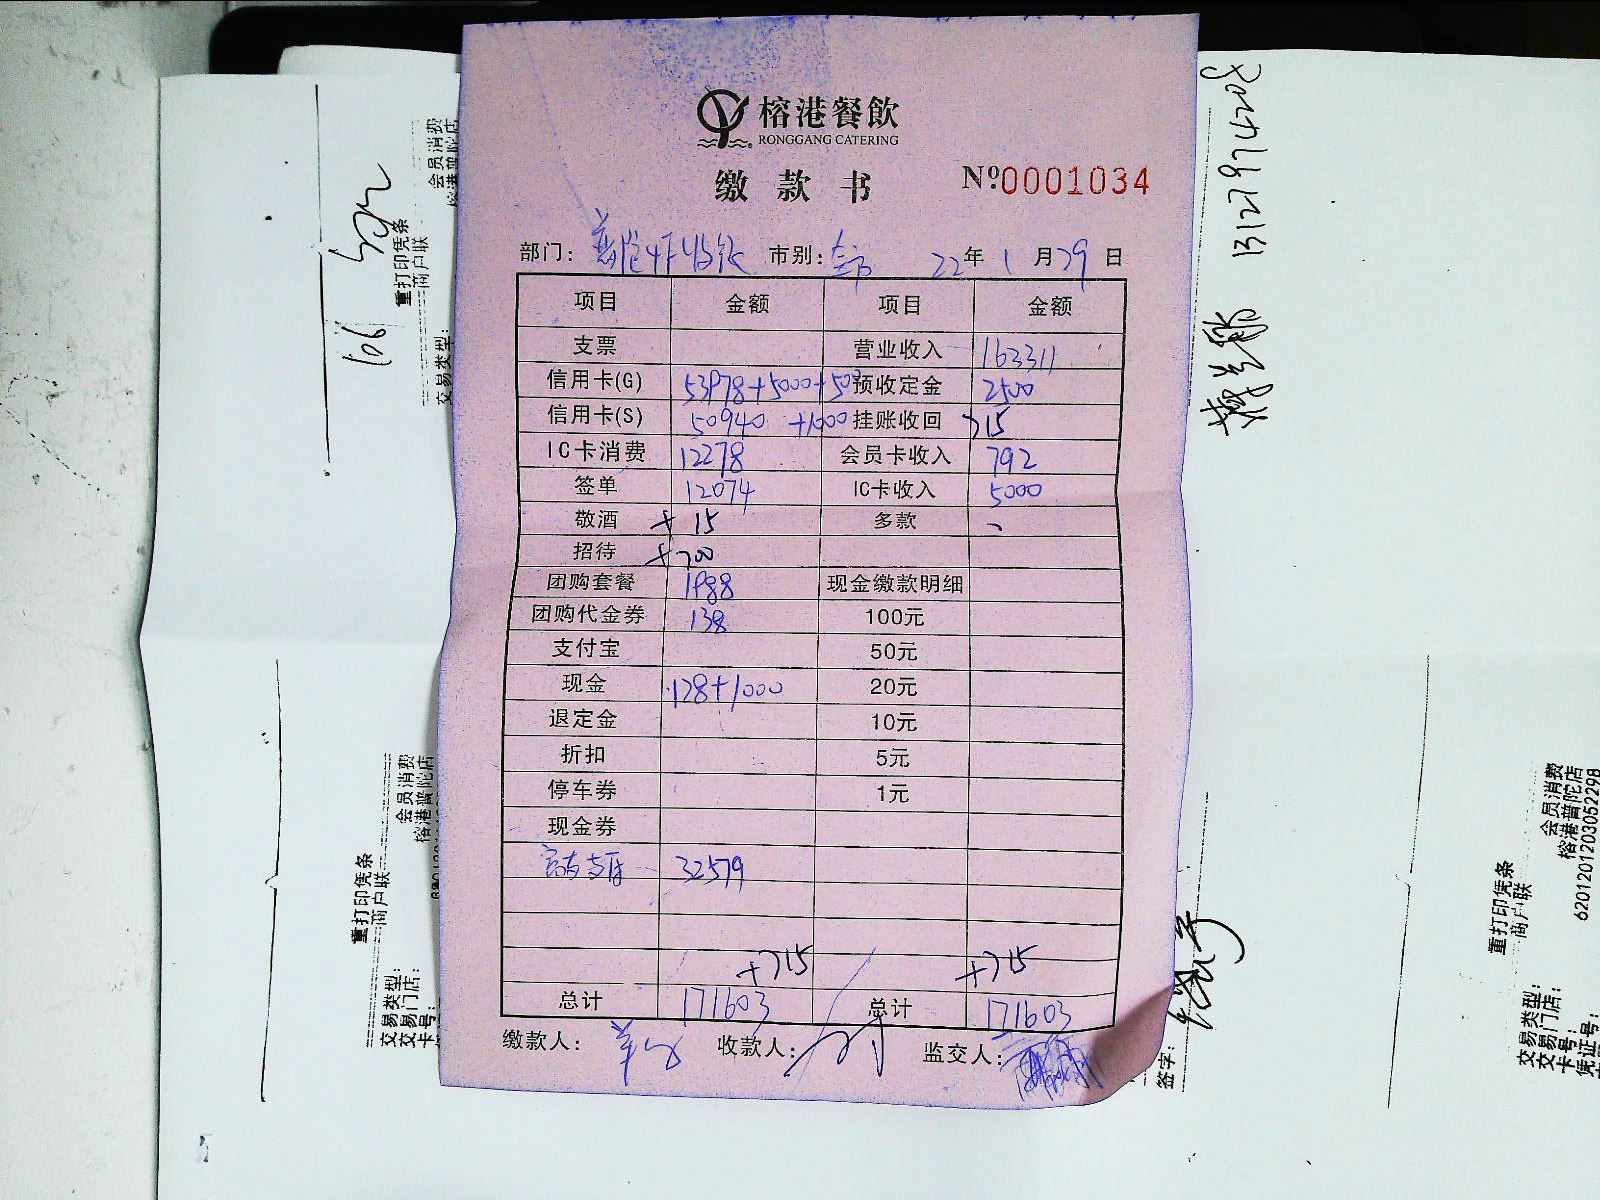 榕港餐飲
RONGGANG CATERING
缴款书 №0001034
部门: 市别: 22年1月29日
项目 金额 项目 金额
支票 营业收入 163311
信用卡(G) 53978+5000+500 预收定金 2500
信用卡(S) 50940 +1000 挂账收回 715
IC卡消费 12278 会员卡收入 792
签单 12074 IC卡收入 5000
敬酒 + 15 多款
招待 +700
团购套餐 1988 现金缴款明细
团购代金券 138 100元
支付宝 50元
现金 128+1000 20元
退定金 10元
折扣 5元
停车券 1元
现金券
32579
+715 +715
总计 171603 总计 171603
缴款人: 收款人: 监交人:
会员消费
重打印凭条
商户联
交易类型:
会员消费
榕港普陀店
重打印凭条
商户联
交易类型:
交易门店:
卡号:
13127974208
签字:
会员消费
榕港普陀店
6201201203052298
重打印凭条
商户联
交易类型:
交易门店:
卡号:
凭证号: